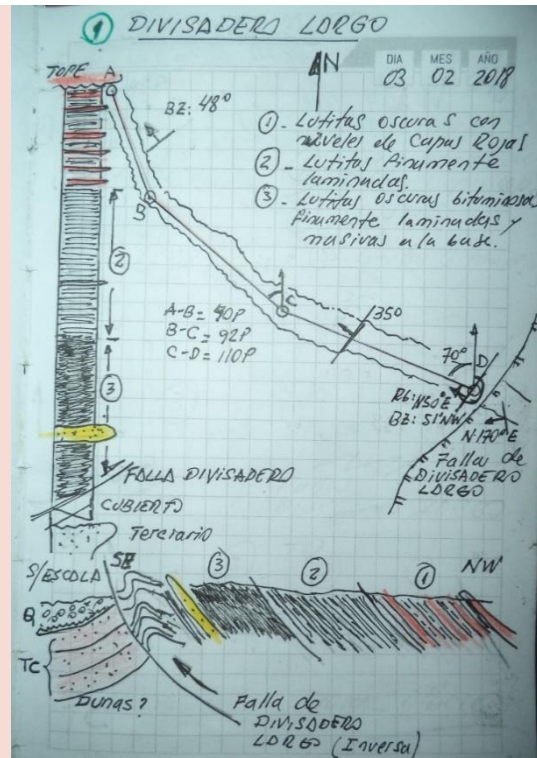 ① DIVISADERO LARGO
DIA MES AÑO
03 02 2018
N
TOPE
A
BZ: 48°
①- Lutitas oscuras con
niveles de Capas Rojas
②- Lutitas Finamente
laminadas.
③- Lutitas Oscuras bituminosas
Finamente laminadas y
masivas a la base.
B
②
C
A-B= 90P
B-C= 92P
C-D= 110P
35°
70°
D
③
Rb: N50°E
BZ: 51°NW
N170°E
Falla de
DIVISADERO
LARGO
FALLA DIVISADERO
CUBIERTO
Terciario
S/ESCALA
SE
③
②
①
NW
Q
TC
Dunas?
Falla de
DIVISADERO
LARGO (Inversa)